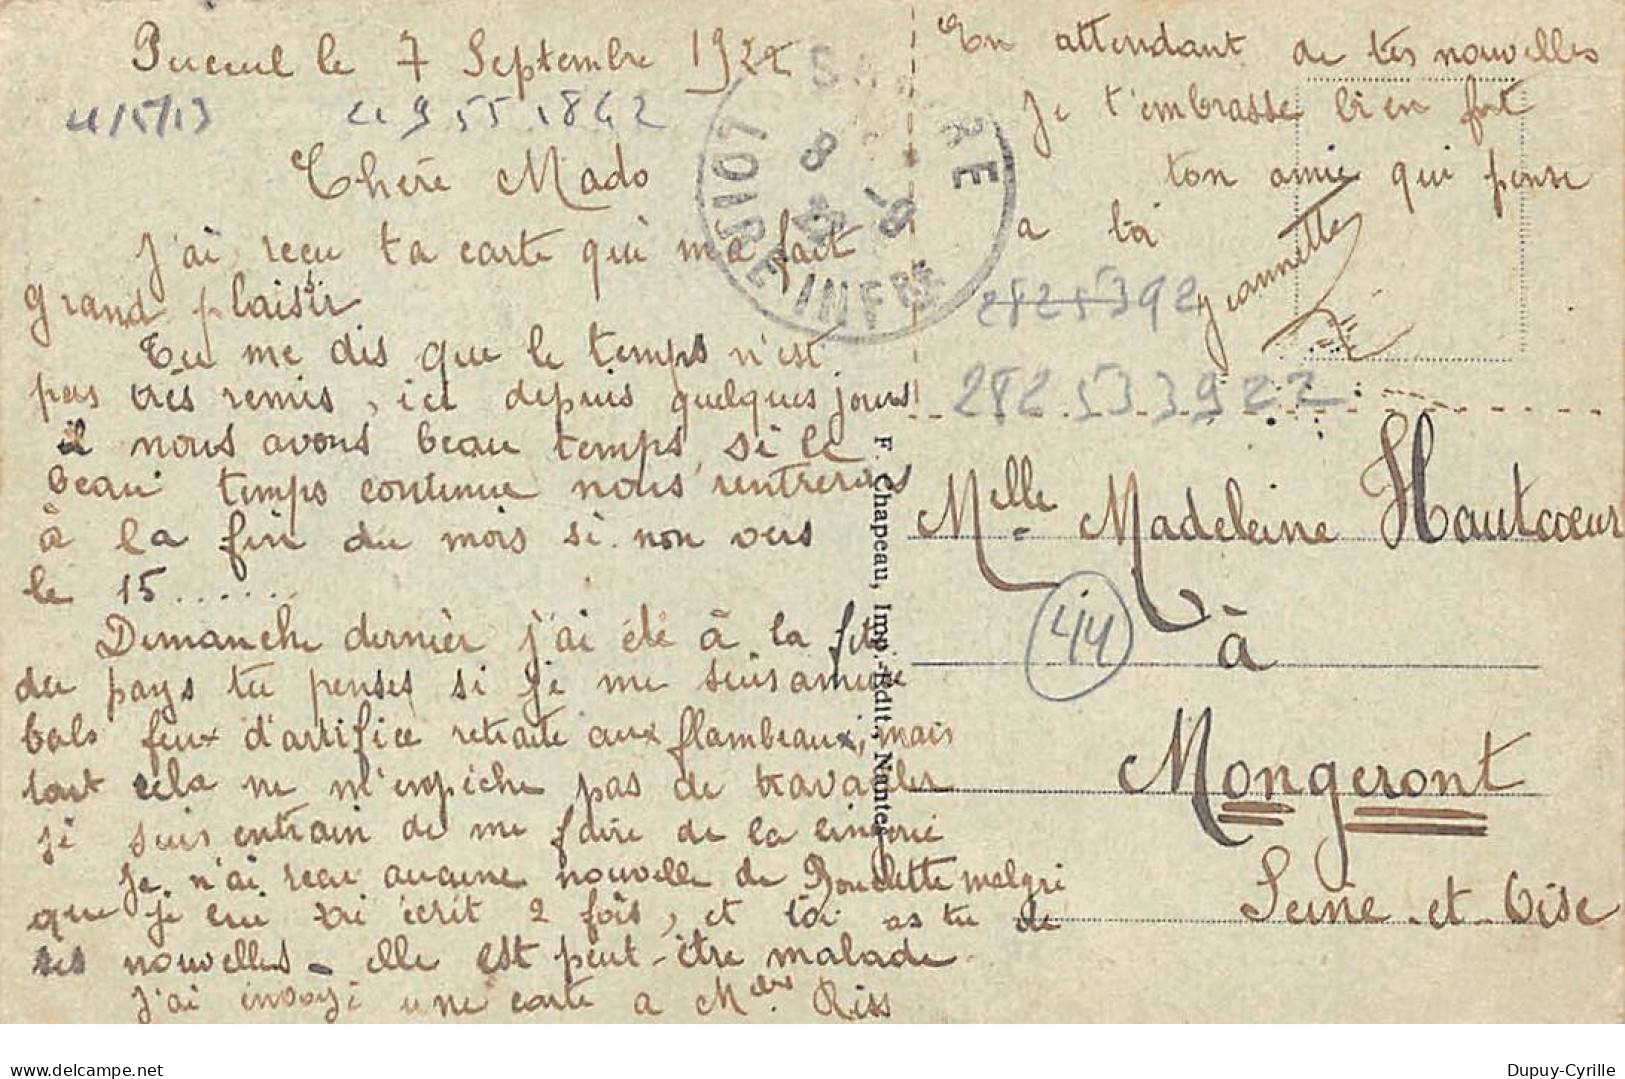 Puceul le 7 Septembre 1922
Chère Mado
J'ai reçu ta carte qui m'a fait
grand plaisir
Tu me dis que le temps n'est
pas très remis, ici depuis quelques jours
il nous avons beau temps, si le
beau temps continue nous rentrerons
à la fin du mois si non vers
le 15......
Dimanche dernier j'ai été à la fête
du pays tu penses si je me suis amusée
bals feux d'artifice retraite aux flambeaux, mais
tout cela ne m'empêche pas de travailler
je suis entrain de me faire de la lingerie
Je n'ai reçu aucune nouvelle de malgré
que je lui ai écrit 2 fois, et toi as tu de
ses nouvelles - elle est peut-être malade
J'ai envoyé une carte a Melles Riss
En attendant de tes nouvelles
Je t'embrasse bien fort
ton amie qui pense
a toi
Jeannette
28253392
282533922
LOIRE INFRE
F. Chapeau, Imp.-Edit., Nantes
Melle Madeleine Hautcoeur
44
à
Mongeront
Seine-et-Oise
www.delcampe.net
Dupuy-Cyrille